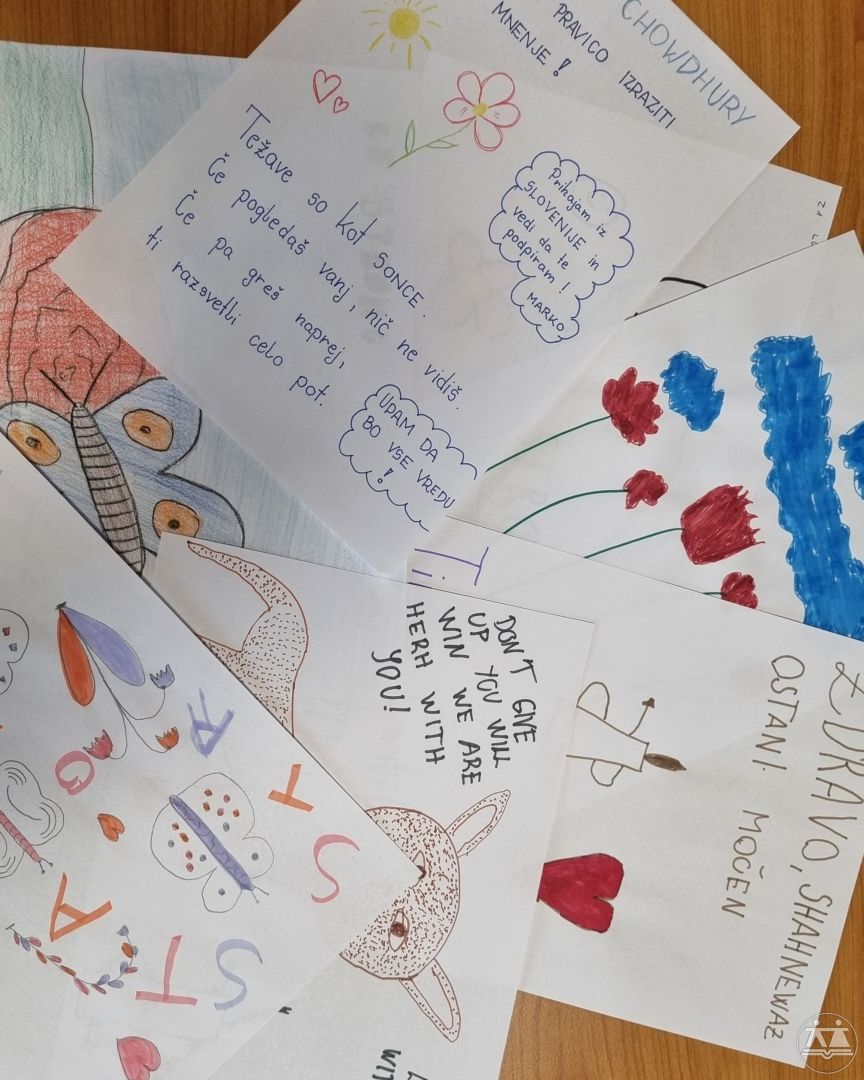 CHOWDHURY
PRAVICO IZRAZITI
MNENJE!
Težave so kot SONCE.
Če pogledaš vanj, nič ne vidiš.
Če pa greš naprej,
ti razsvetli celo pot.
Prihajam iz
SLOVENIJE in
vedi da te
podpiram!
MARKO
UPAM DA
BO VSE VREDU
!
DON'T GIVE
UP YOU WILL
WIN WE ARE
HERH WITH
YOU!
ZDRAVO, SHAHNEWAZ
OSTANI MOČEN